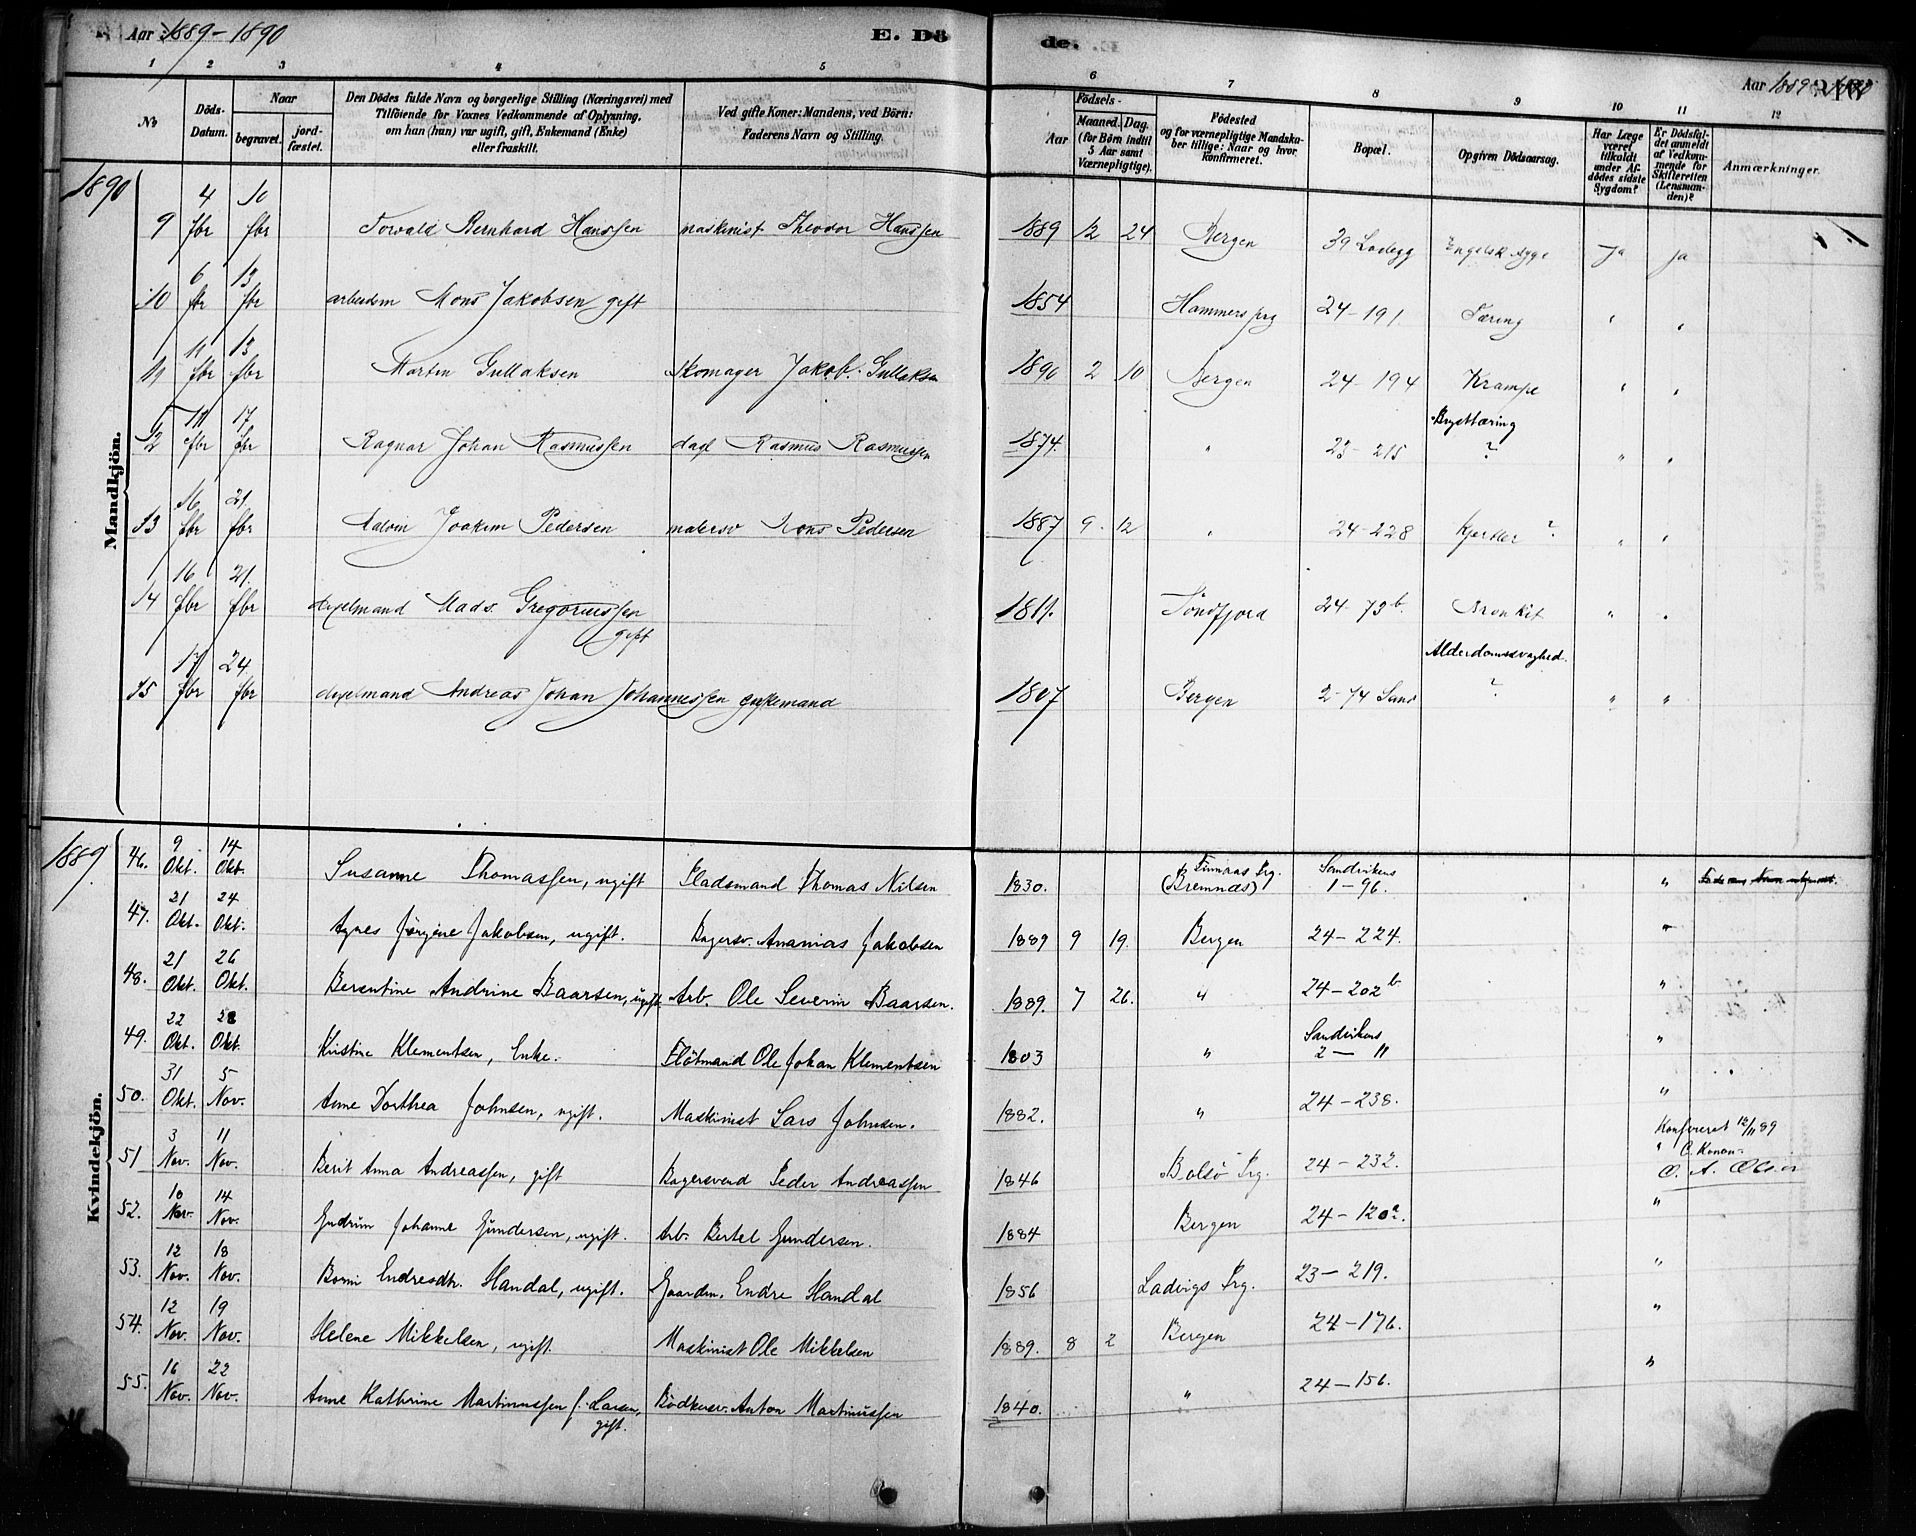 Aar 1889-1890
E. Dö
de.
Aar 1889-1890
1 2 3 4 5 6 7 8 9 10 11 12
No
Döds-Datum.
Naar
begravet.
jord-fæstet.
Den Dödes fulde Navn og borgerlige Stilling (Næringsvei) med
Tilföiende for Voxnes Vedkommende af Oplysning,
om han (hun) var ugift, gift, Enkemand (Enke)
eller fraskilt.
Ved gifte Koner: Mandens, ved Börn:
Faderens Navn og Stilling.
Födsels-
Aar
Maaned.
Dag.
(for Börn indtil
5 Aar samt
Værnepligtige).
Födested
og for værnepligtige Mandska-
ber tillige: Naar og hvor
konfirmeret.
Bopæl.
Opgiven Dödsaarsag.
Har Læge
været
tilkaldt
under Af-
dödes sidste
Sygdom?
Er Dödsfal-
det anmeldt
af Vedkom-
mende for
Skifteretten
(Lensman-
den)?
Anmærkninger.
Mandkjön.
1890
9 4 fbr 10 fbr Torvald Bernhard Hanssen maskinist Theodor Hanssen 1889 12 24 Bergen 39 Ladegg Engelsk syge Ja Ja
10 6 fbr 13 fbr arbeidsm Mons Jakobsen gift 1854 Hammers prg 24-191 Tæring " "
11 11 fbr 13 fbr Martin Gullaksen Skomager Jakob Gullaksen 1890 2 10 Bergen 24-194 Krampe " "
12 11 fbr 17 fbr Ragnar Johan Rasmussen dagl Rasmus Rasmussen 1874. " 23-215 Brysttæring ? " "
13 16 fbr 21 fbr Joakim Pedersen malersv Mons Pedersen 1887 9 12 " 24-228 Kjertler ? " "
14 16 fbr 21. fbr Mads Gregoriussen gift Söndfjord 24-73b Bronkit " "
15 17 fbr 24 fbr Andreas Johan Johannessen enkemand 1807 Bergen 2-74 Sand Alderdomssvaghed ? " "
Kvindekjön.
1889
46. 9 Okt. 14 Okt. Susanne Thomassen, ugift Pladsmand Thomas Nilsen 1830. Finnaas Prg. (Bremnæs) Sandvikens 1-96. "
47. 21 Okt. 24 Okt. Agnes Jörgine Jakobsen, ugift. Bagersv. Ananias Jakobsen 1889 9 19. Bergen 24-224. "
48. 21 Okt. 26 Okt. Berentine Andrine Baarsen, ugift Arb. Ole Severin Baarsen. 1889. 7 26. " 24-202b "
49. 22 Okt. 28 Okt. Kristine Klementsen, Enke. Flötmand Ole Johan Klementsen 1803 " Sandvikens 2-11 "
50. 31 Okt. 5 Nov. Anne Dorthea Johnsen, ugift. Maskinist Lars Johnsen. 1882. " 24-238. "
51 3 Nov. 11 Nov. Berit Anna Andreassen, gift Bagersvend Peder Andreassen 1846 Bolsö Prg. 24-232. " Konfereret 12/11 89
O. A. Olsen
52. 10 Nov. 14 Nov. Gudrun Johanne Gundersen, ugift. Arb. Bertel Gundersen. 1884 Bergen 24-120a. "
53. 12 Nov. 18 Nov. Endresdtr. Handal, ugift. Gaardm. Endre Handal 1856 Ladvigs Prg. 23-219. "
54. 12 Nov. 19 Nov. Helene Mikkelsen, ugift. Maskinist Ole Mikkelsen 1889. 8 2 Bergen 24-176. "
55. 16 Nov. 22 Nov. Anne Kathrine Martinussen f. Larsen, gift. Bödkersv. Anton Martinussen 1840. " 24-156. "